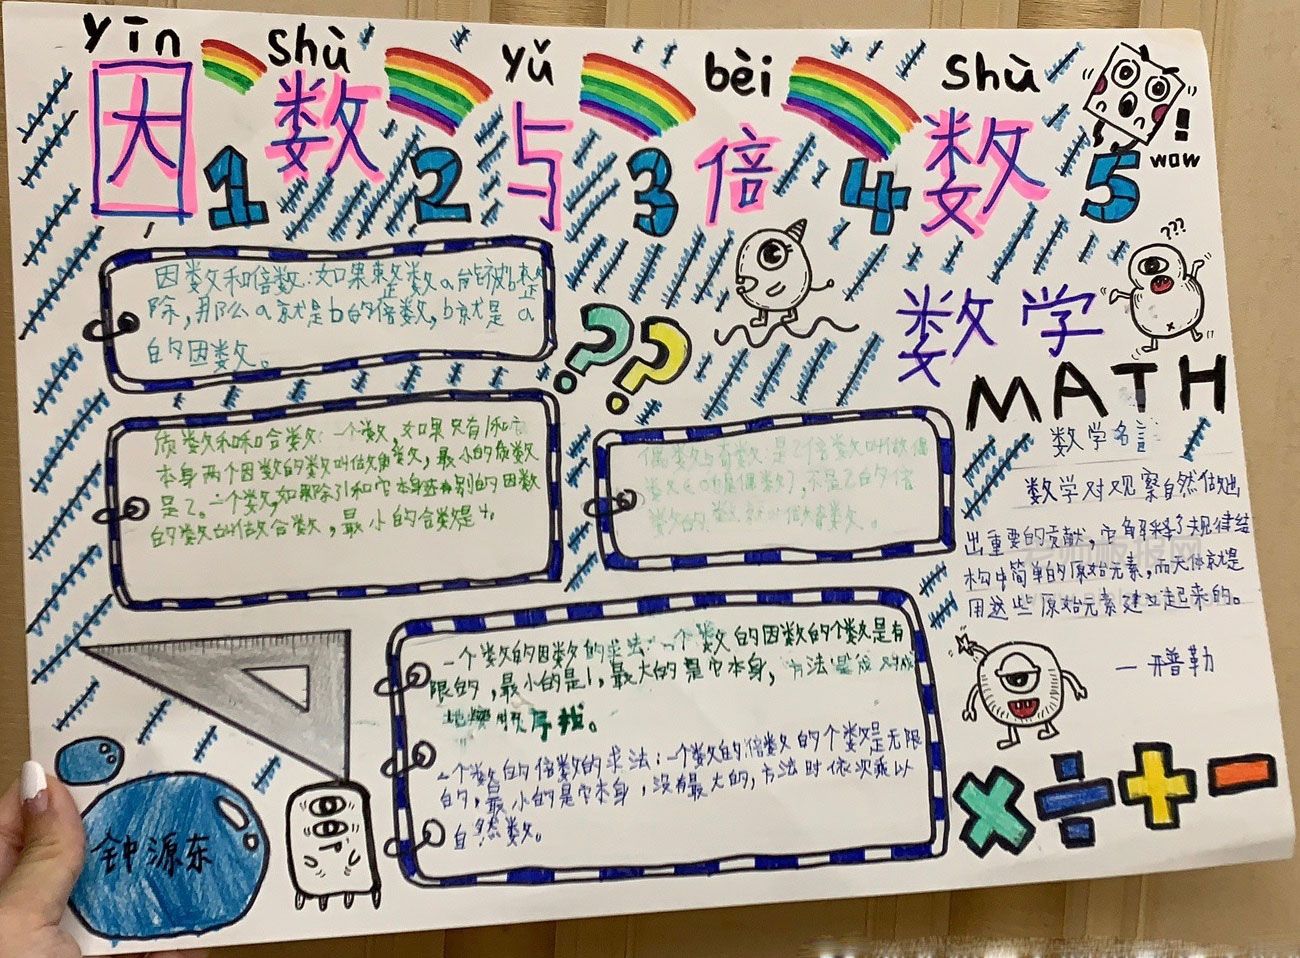 yīn shù yǔ bèi shù
因数与倍数
1 2 3 4 5
wow
???
因数和倍数:如果整数a能被b整
除,那么a就是b的倍数,b就是a
的因数。
??
数学
MATH
质数和和合数:一个数,如果只有1和
本身两个因数的数叫做质数,最小的质数
是2。一个数,如果除了1和它本身还有别的因数
的数叫做合数,最小的合数是4。
偶数与奇数:是2倍数叫做偶
数(0也是偶数),不是2的倍
数的数就叫做奇数。
数学名言
数学对观察自然做出
出重要的贡献,它解释了规律结
构中简单的原始元素,而天体就是
用这些原始元素建立起来的。
—开普勒
一个数的因数的求法:一个数的因数的个数是有
限的,最小的是1,最大的是它本身,方法是成对成
地按顺序找。
一个数的倍数的求法:一个数的倍数的个数是无限
的,最小的是它本身,没有最大的,方法时依次乘以
自然数。
× ÷ + -
钟源东